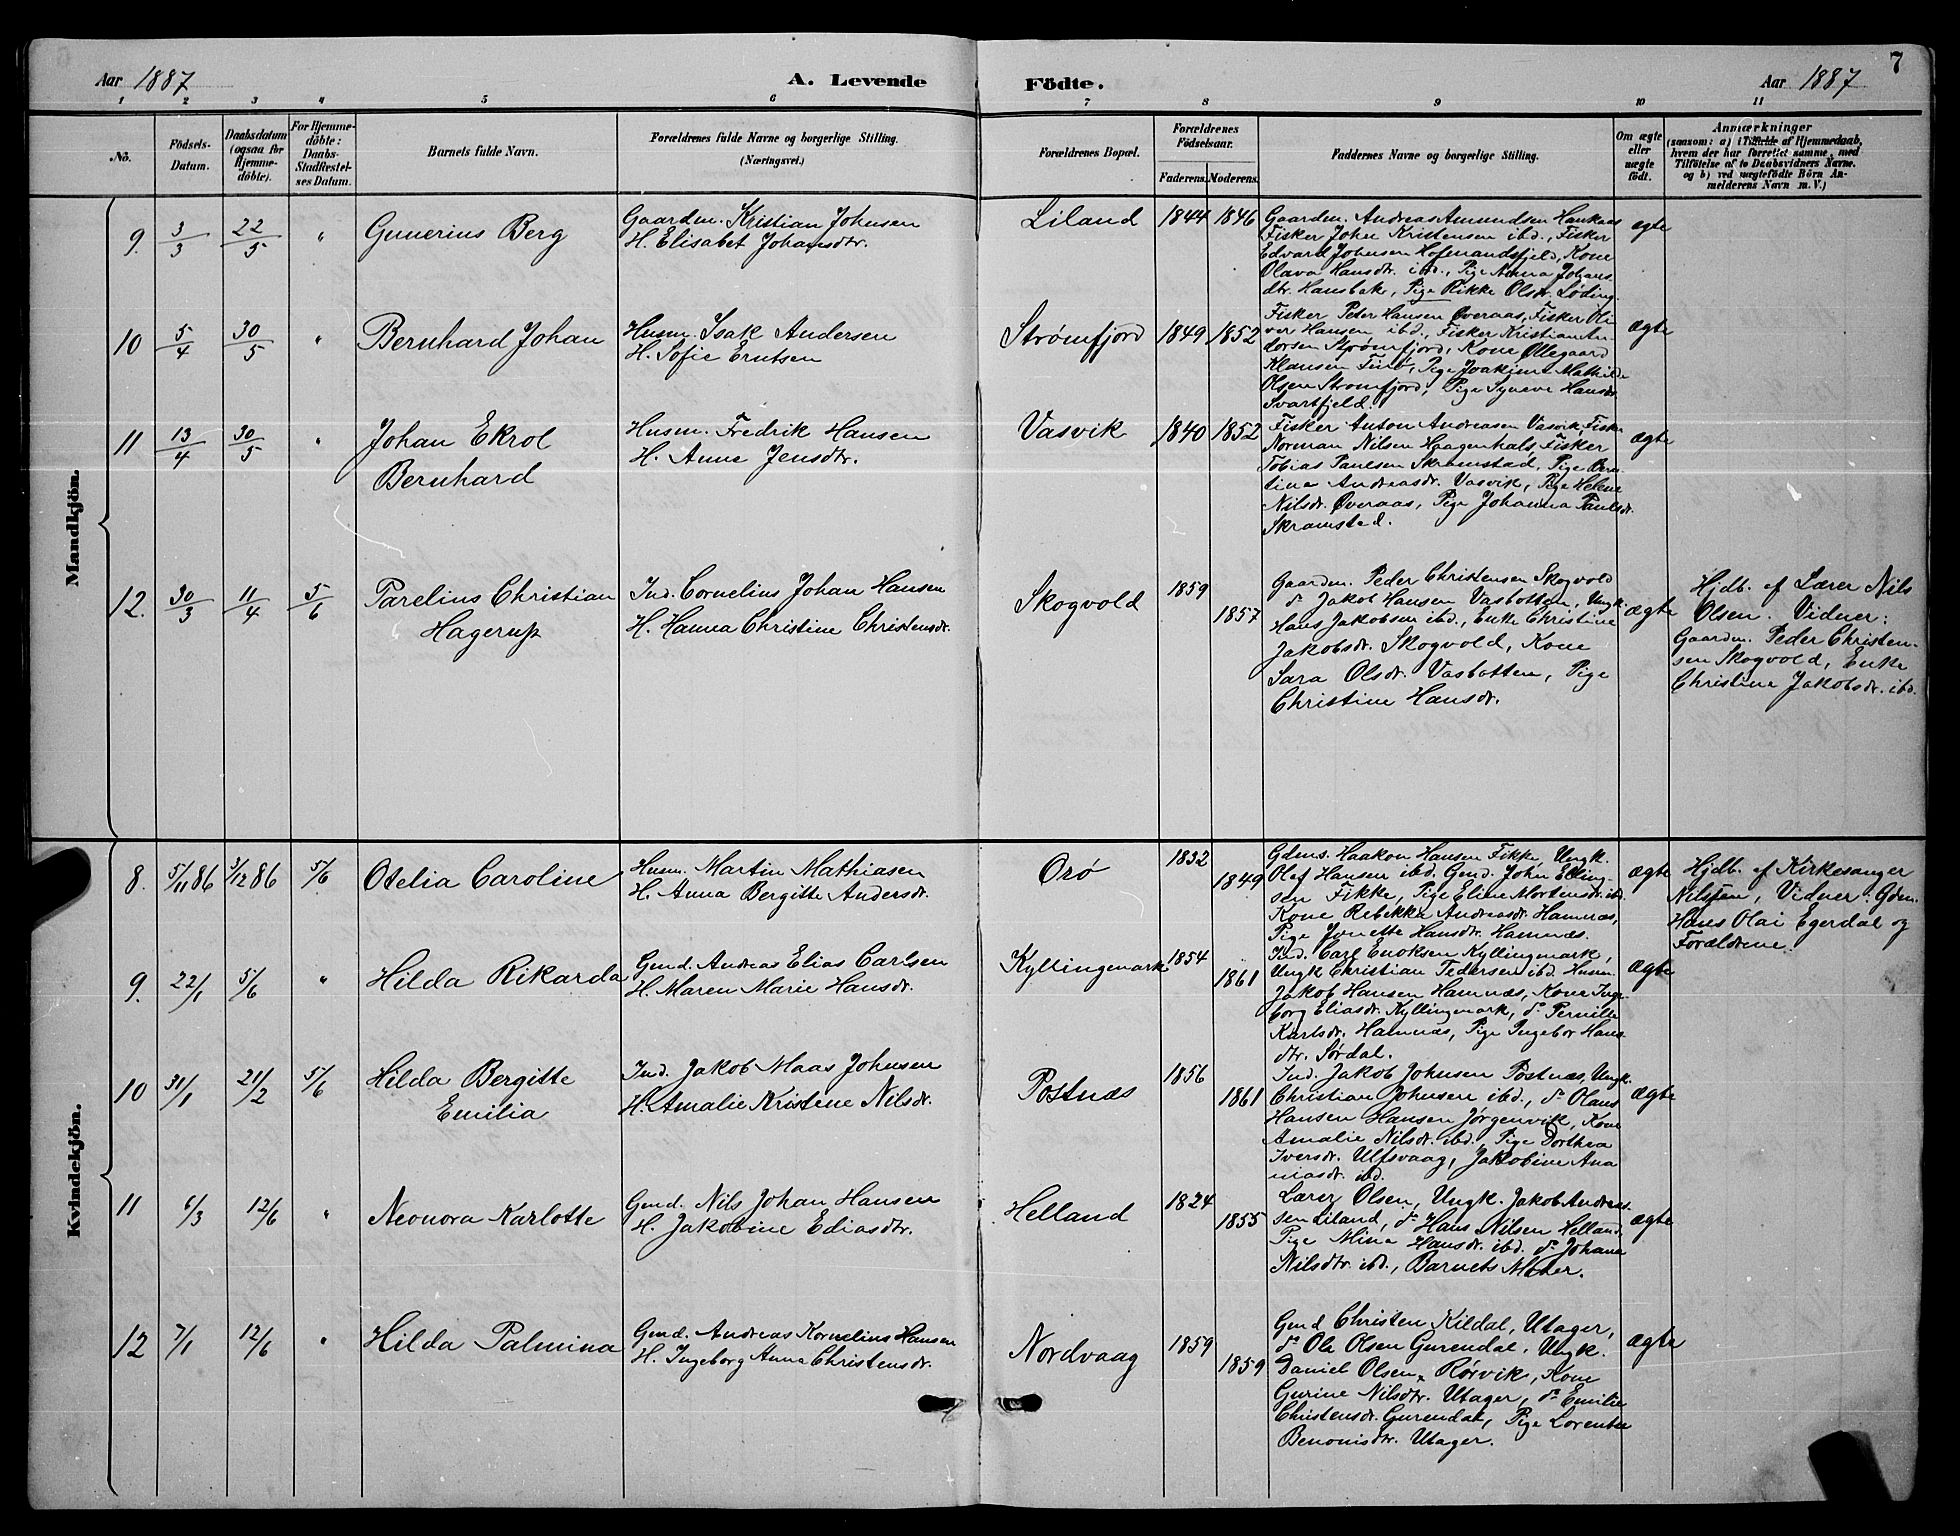 7
Aar 1887
A. Levende Födte.
Aar 1887
1 2 3 4 5 6 7 8 9 10 11
No.
Födsels-
Datum.
Daabsdatum
(ogsaa for
Hjemme-
döbte).
For Hjemme-
döbte:
Daabs-
Stadfæstel-
ses Datum.
Barnets fulde Navn.
Forældrenes fulde Navne og borgerlige Stilling.
(Næringsvei.)
Forældrenes Bopæl.
Forældrenes
Födselsaar.
Faderens.
Moderens.
Faddernes Navne og borgerlige Stilling.
Om ægte
eller
uægte
födt.
Anmærkninger
(saasom: a) i Tilfælde af Hjemmedaab,
hvem der har forrettet samme, med
Tilföielse af to Daabsvidners Navne.
og b) ved uægtefödte Börn An-
melderens Navn m. V.)
Mandkjön.
9. 3/3 22/5 "
Gunerius Berg
Gaardm. Kristian Johnsen
H. Elisabet Johansdtr.
Liland
1844 1846
Gaardm. Andreas Amundsen Haukaas
Fisker Johan Kristensen ibd., Fisker
Edvard Johnsen Hofmandsfjeld, Kone
Olava Hansdtr. ibd., Pige Anna Johans-
dtr. Hansbak, Pige Rikke Olsdtr. Løding.
ægte
10 5/4 30/5 "
Bernhard Johan
Husm. Isak Andersen
H. Sofie Erntsen
Strømfjord
1849 1852
Fisker Peter Hansen Øveraas, Fisker Oli-
ver Hansen ibd., Fisker Kristian An-
dersen Strømfjord, Kone Ollegaard
Klausen Finø, Pige Joakime Mathilde
Olsen Strømfjord, Pige Synøve Hansdr.
Svartfjeld.
Ægte
11 13/4 30/5 "
Johan Ekrol
Bernhard
Husm. Fredrik Hansen
H. Anne Jensdtr.
Vasvik
1840 1852
Fisker Anton Andreasen Vasvik, Fisker
Norman Nilsen Haagenhals, Fisker
Tobias Paulsen Skramstad, Pige Bern-
tine Andreasdr. Vasvik, Pige Helene
Nilsdr. Øveraas, Pige Johanna Paulsdr.
Skramstad.
ægte
12. 30/3 11/4 5/6
Parelius Christian
Hagerup
Ind. Cornelius Johan Hansen
H. Hanna Christine Christensdr.
Skogvold
1859
1857
Gaardm. Peder Christensen Skogvold
do Jakob Hansen Vasbotten, Ungk.
Hans Jakobsen ibd., Enke Christine
Jakobsdr. Skogvold, Kone
Sara Olsdr. Vasbotten, Pige
Christine Hansdr.
ægte
Hjdb. af Lærer Nils
Olsen. Vidner:
Gaardm. Peder Christen-
sen Skogvold, Enke
Christine Jakobsdr. ibd.
Kvindekjön.
8. 5/11 86 3/12 86 5/6
Otelia Caroline
Husm. Martin Mathiasen
H. Anna Bergitte Andersdr.
Orø
1832
1849
Gdms. Haakon Hansen Fikke, Ungk.
Olaf Hansen ibd. Gmd. John Elling-
sen Fikke, Pige Eline Mortensdr. ibd.
Kone Rebekka Andreasdr. Hamnæs,
Pige Jonette Hansdr. Hamnæs.
ægte
Hjdb. af Kirkesanger
Nilssen, Vidner: Gdm.
Hans Olai Egerdal og
Forældrene.
9. 22/1 5/6 "
Hilda Rikarda
Gmd. Andreas Elias Carlsen
H. Maren Marie Hansdr.
Kyllingmark
1854
1861
Ind. Carl Enoksen Kyllingmark,
Ungk Christian Pedersen ibd. Husm.
Jakob Hansen Hamnæs, Kone Inge-
borg Eliasdr. Kyllingmark, do Pernille
Karlsdr. Hamnæs, Pige Ingebor Hans-
dtr. Sørdal.
Ægte
10 31/1 21/2 5/6
Hilda Bergitte
Emilia
Ind. Jakob Maas Johnsen
H. Amalie Kristine Nilsdr.
Postnæs
1856
1861
Ind. Jakob Johnsen Postnæs, Ungk.
Christian Johnsen ibd., do Olaus
Hansen Hansen Jørgenvik, Kone
Amalie Nilsdr. ibd., Pige Dorthea
Iversdr. Ulfsvaag, Jakobine Ana
niasdr. ibd.
Ægte
11 6/3 12/6 "
Neonora Karlotte
Gmd. Nils Johan Hansen
H. Jakobine Ediasdtr.
Helland
1824
1855
Lærer Olsen, Ungk. Jakob Andreas-
sen Liland, do Hans Nilsen Helland
Pige Mina Hansdr. ibd. do Johana
Nilsdtr. ibd., Barnets Moder.
ægte
12 7/1 12/6 "
Hilda Palmina
Gmd. Andreas Kornelius Hansen
H. Ingeborg Anna Christensdr.
Nordvaag
1859
1859
Gmd Christen Kildal, Utager,
do Ole Olsen Gurendal, Ungk.
Daniel Olsen, Rørvik, Kone
Gurine Nilsdtr. Utager, do Emilie
Christensdr. Gurendal, Pige Lorentse
Benonisdtr. Utager.
ægte